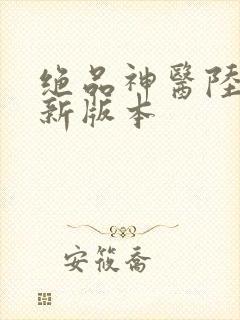 绝品神醫陸
新版本
安筱喬